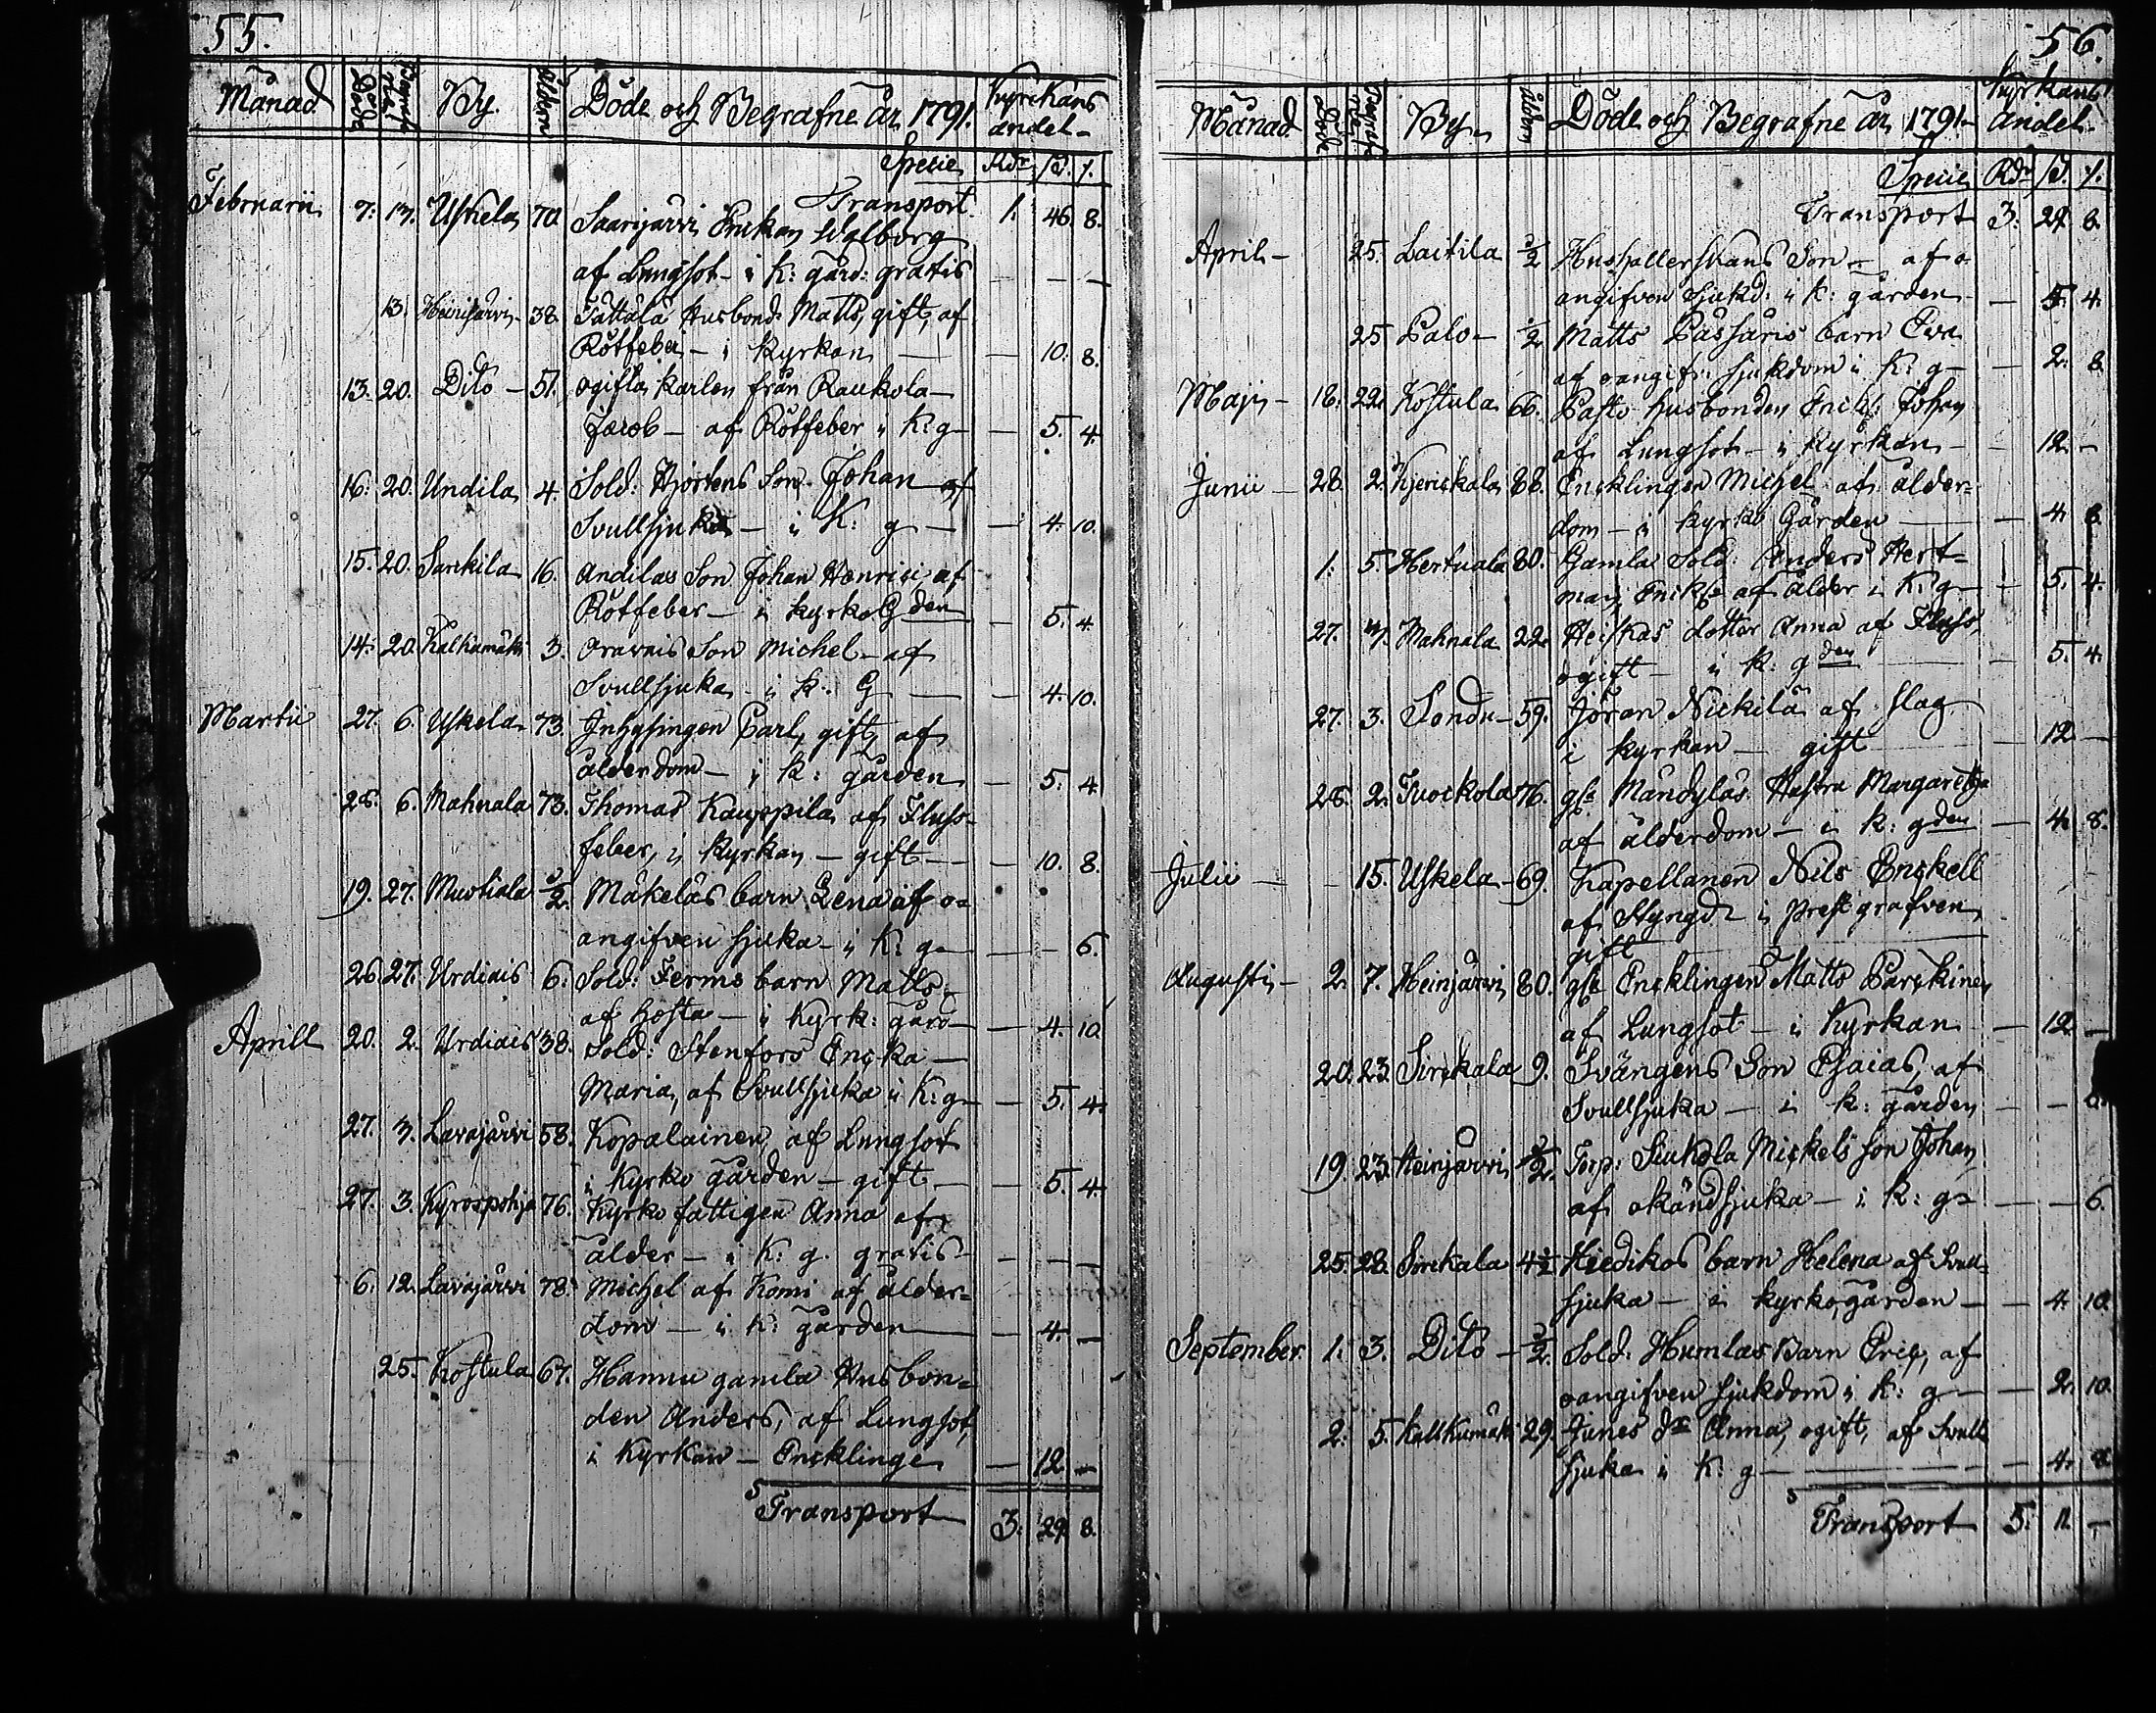 55.
Månad Döde Begrafne By. Åldern Döde och Begrafne år 1791. Kyrckans andel
Specie Rdr ß. r.
Transport 1. 46. 8.
Februarii 7. 13. Uskela 70. Saarijärvi Enckan Walborg
af Lungsot i k: gård: gratis — — —
13. Heinijärvi 38. Tattala Husbond Matts, gift, af
Rötfeber — i Kyrkan — 10. 8.
13. 20. Dito — 51. ogifta karlen från Raukola
Jacob — af Rötfeber i K: g — 5. 4.
16. 20. Undila 4. Sold: Hjortens Son Johan af
Svullsjuka — i K: g — 4. 10.
15. 20. Sarckila 16. Andilas Son Johan Henrici af
Rötfeber — i kyrko Gden — 5. 4.
14. 20. Kalkumäki 3. Oravais Son Michel — af
Svullsjuka — i k: G — 4. 10.
Martii 27. 6. Uskela 73. Inhysingen Carl, gift, af
ålderdom — i k: gården — 5. 4
28. 6. Mahnala 73. Thomas Kauppila af Fluss-
feber, i Kyrkan — gift — 10. 8.
19. 27. Muotiala ½. Mäkeläs barn Lena af o=
angifven sjuka — i K: g — — 6.
26. 27. Urdiais 6. Sold: Ferms barn Matts
af hosta — i Kyrk: gård — 4. 10.
Aprill 20. 2. Urdiais 38. Sold: Stenfors Encka —
Maria, af Svullsjuka i K: g — 5. 4.
27. 3. Lavajärvi 58. Kopalainen, af Lungsot
i Kyrko gården — gift — 5. 4.
27. 3. Kyrospohja 76. Kyrko fattigen Anna af
ålder — i K: g. gratis — — —
6. 12. Lavajärvi 78. Michel af Komi af ålder=
dom — i K: gården — 4. —
25. Kostula 67. Hannu gamla Husbon=
den Anders, af Lungsot,
i Kyrkan — Encklinge — 12. —
Transport 3. 29. 8.
56.
Månad Döde Begrafne By Åldern Döde och Begrafne år 1791 Kyrkans andel.
Specie Rdr ß r.
Transport 3. 29. 8.
April — 25. Laitila ½ Hushållerskans Son — af o=
angifven Sjukd: i k: gården — 5. 4.
25 Palo — ½ Matts Passaris barn Eva
af oangifn sjukdom i K: g — 2. 8.
Maji — 18. 22. Kostula 66. Pasto husbonden Johan
af Lungsot — i Kyrkan — 12. —
Junii — 28. 2. Kjerickala 88. Encklingen Michel af ålder=
dom — i kyrko Gården — 4. 8.
1. 5. Hertuala 80. Gamla Sold: Anders Hert=
man, af ålder i K: g — 5. 4.
27. Mahnala 22. Heiskas dotter Anna af Fluss,
ogift — i k: gden — 5. 4.
27. 3. Sondu — 59. Jöran Nickilä af Slag
i kyrkan — gift — 12 —
28. 2. Tuockola 76. Mändyläs Hustru Margaretha
af ålderdom — i k: gden — 4. 8.
Julii — 15. Uskela — 69. Kapellanen Nils Enckell
af Styng i prest grafven
gift
Augusti — 2. 7. Heinijärvi 80. Encklingen Matts Parckinen
af Lungsot — i Kyrkan — 12. —
20. 23. Sirckala 9. Svängens Son Esaias, af
Svullsjuka — i k: gården — —
19. 23. Heinijärvi Torp: Siukola Mickels Son Johan
af okänd sjuka — i k: g — — 6.
25. 28. Sirckala 4½ Hiedikos barn Helena af Svull=
sjuka — i kyrkogården — 4. 10.
September 1. 3. Dito — ½. Sold: Humlas Barn Eric, af
oangifven sjukdom i k: g — 2. 10.
2. 5. Kalkumäki 29. Junes dr Anna, ogift, af Svull
sjuka i K: g — 4. 8.
Transport 5. 11. —